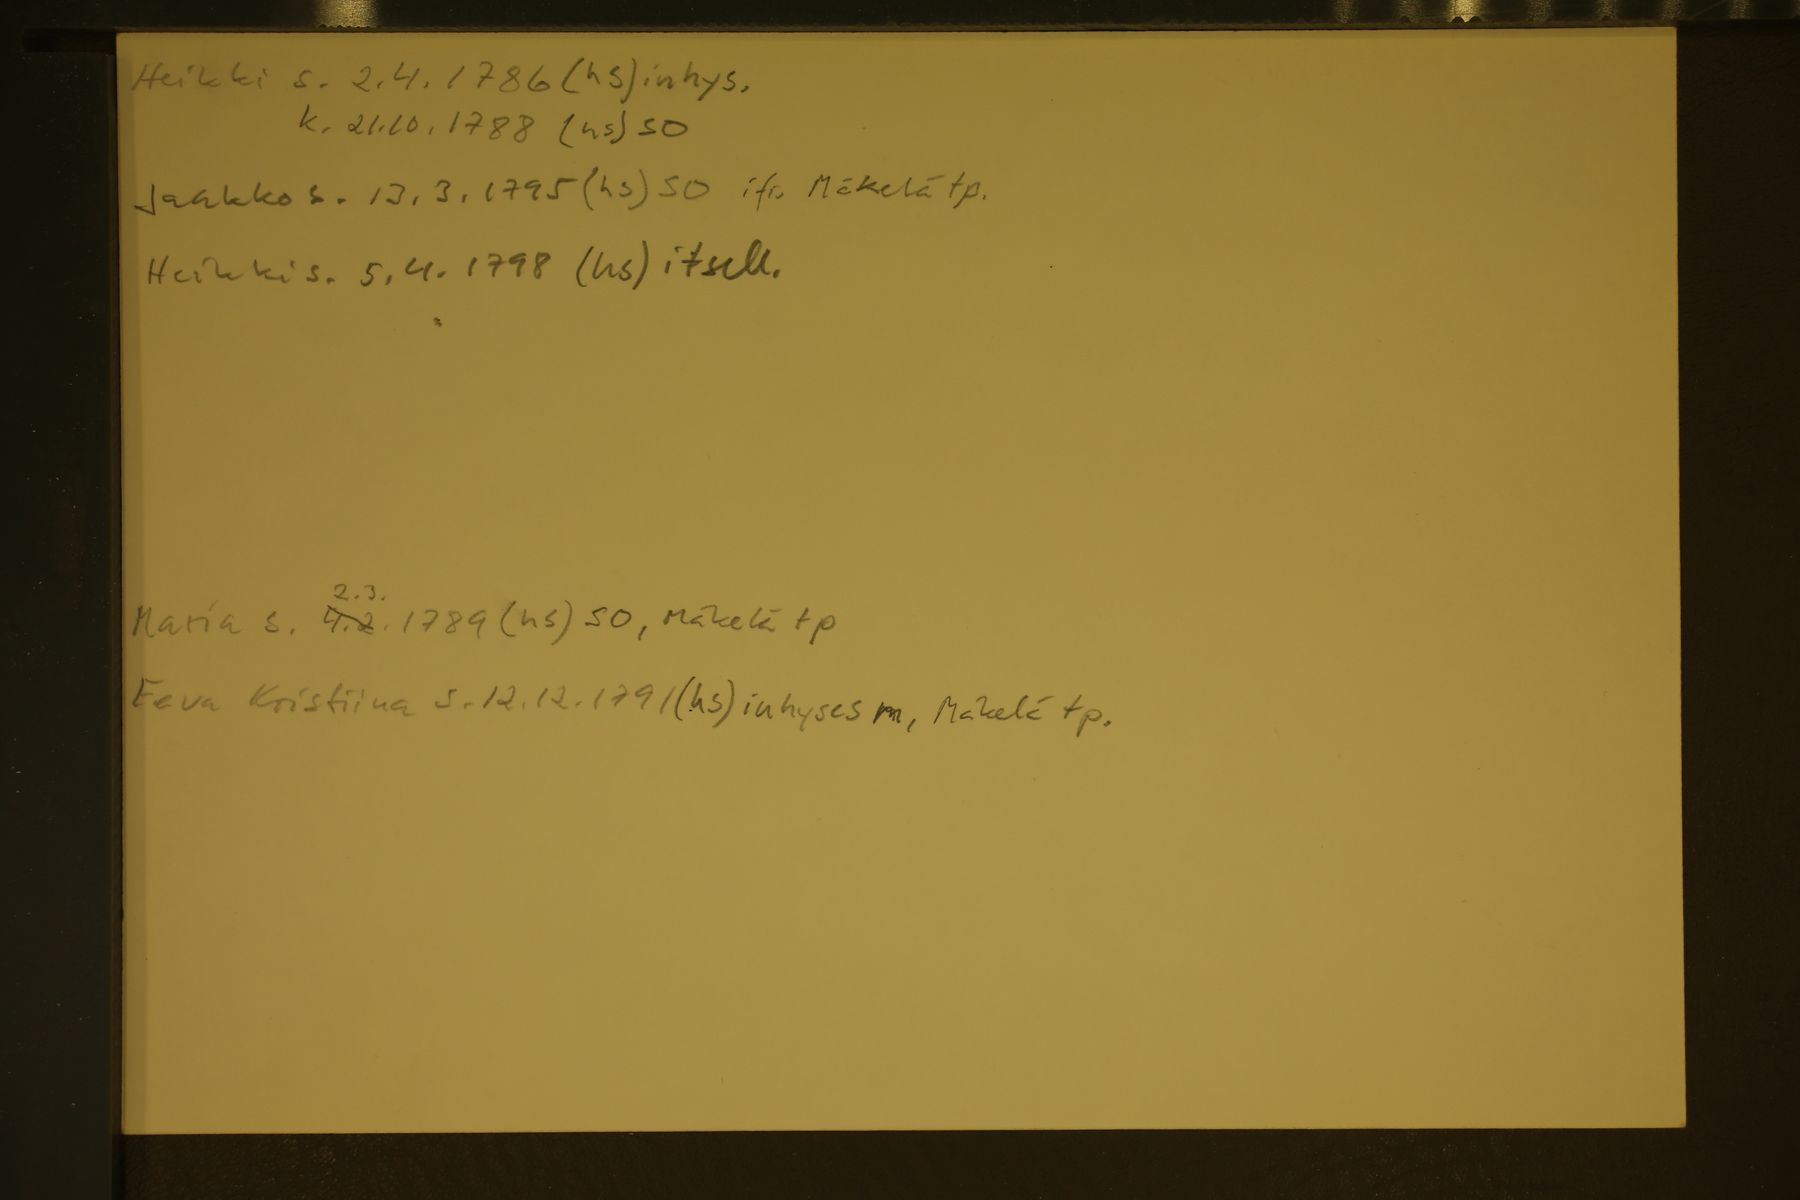 Heikki s. 2.4.1786 (hs) inhys.
k. 21.10.1788 (hs) SO
Jaakko s. 13.3.1795 (hs) SO ifr. Mäkelä tp.
Heikki s. 5.4.1798 (hs) itsell.
2.3.
Maria s. 4.2.1789 (hs) SO, Mäkelä tp
Eeva Kristiina s. 12.12.1791 (hs) inhyses m, Mäkelä tp.